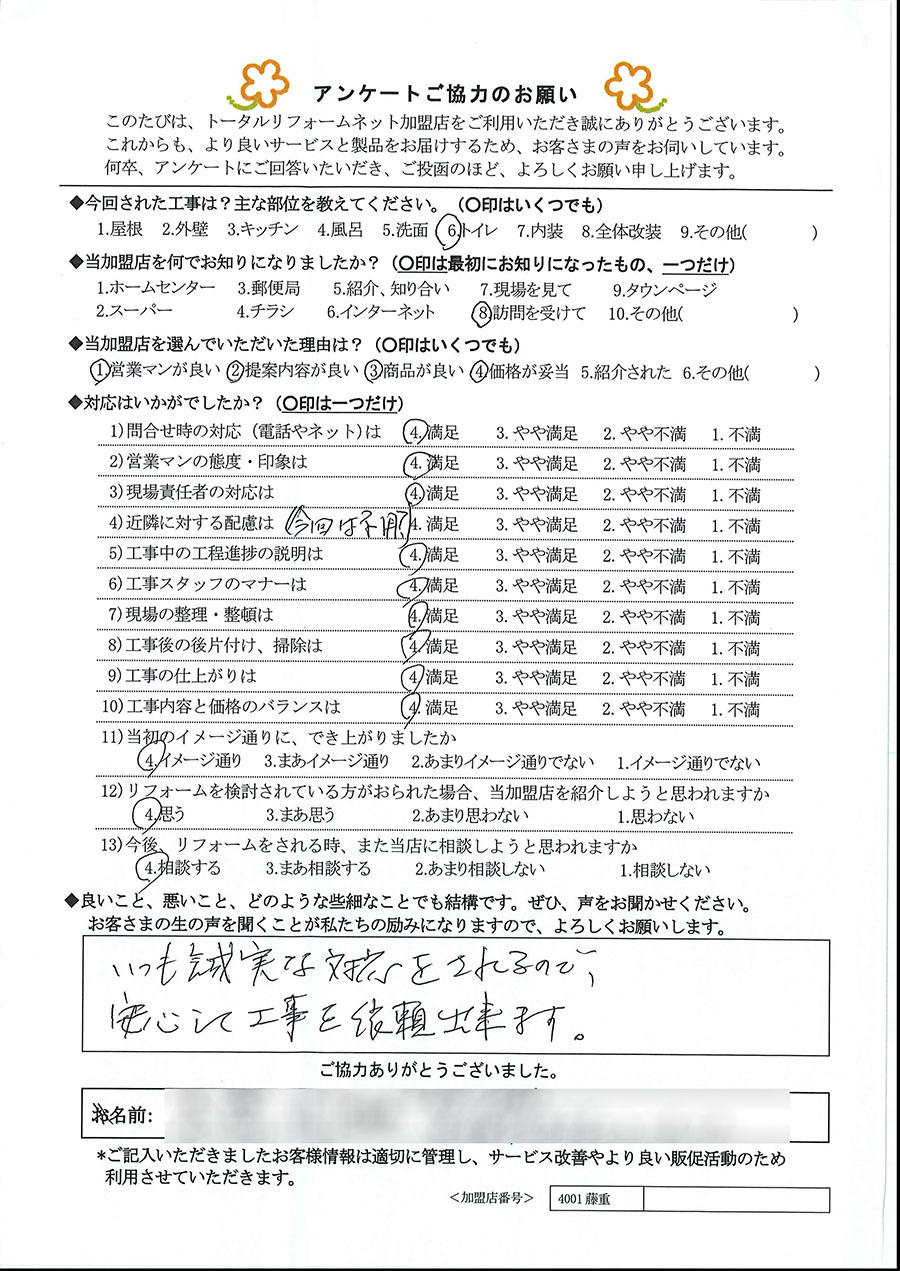 アンケートご協力のお願い
このたびは、トータルリフォームネット加盟店をご利用いただき誠にありがとうございます。
これからも、より良いサービスと製品をお届けするため、お客さまの声をお伺いしています。
何卒、アンケートにご回答いたいだき、ご投函のほど、よろしくお願い申し上げます。
◆今回された工事は？主な部位を教えてください。（〇印はいくつでも）
1.屋根 2.外壁 3.キッチン 4.風呂 5.洗面 6.トイレ 7.内装 8.全体改装 9.その他( )
◆当加盟店を何でお知りになりましたか？（〇印は最初にお知りになったもの、一つだけ）
1.ホームセンター 3.郵便局 5.紹介、知り合い 7.現場を見て 9.タウンページ
2.スーパー 4.チラシ 6.インターネット 8訪問を受けて 10.その他( )
◆当加盟店を選んでいただいた理由は？（〇印はいくつでも）
1営業マンが良い 2提案内容が良い 3商品が良い 4価格が妥当 5.紹介された 6.その他( )
◆対応はいかがでしたか？（〇印は一つだけ）
1)問合せ時の対応（電話やネット)は 4.満足 3.やや満足 2.やや不満 1.不満
2)営業マンの態度・印象は 4.満足 3.やや満足 2.やや不満 1.不満
3)現場責任者の対応は 4.満足 3.やや満足 2.やや不満 1.不満
4)近隣に対する配慮は (今回は不明) 4.満足 3.やや満足 2.やや不満 1.不満
5)工事中の工程進捗の説明は 4.満足 3.やや満足 2.やや不満 1.不満
6)工事スタッフのマナーは 4.満足 3.やや満足 2.やや不満 1.不満
7)現場の整理・整頓は 4.満足 3.やや満足 2.やや不満 1.不満
8)工事後の後片付け、掃除は 4.満足 3.やや満足 2.やや不満 1.不満
9)工事の仕上がりは 4.満足 3.やや満足 2.やや不満 1.不満
10)工事内容と価格のバランスは 4.満足 3.やや満足 2.やや不満 1.不満
11)当初のイメージ通りに、でき上がりましたか
4.イメージ通り 3.まあイメージ通り 2.あまりイメージ通りでない 1.イメージ通りでない
12)リフォームを検討されている方がおられた場合、当加盟店を紹介しようと思われますか
4.思う 3.まあ思う 2.あまり思わない 1.思わない
13)今後、リフォームをされる時、また当店に相談しようと思われますか
4.相談する 3.まあ相談する 2.あまり相談しない 1.相談しない
◆良いこと、悪いこと、どのような些細なことでも結構です。ぜひ、声をお聞かせください。
お客さまの生の声を聞くことが私たちの励みになりますので、よろしくお願いします。
いつも誠実な対応をされるので、
安心して工事を依頼出来ます。
ご協力ありがとうございました。
お名前:
*ご記入いただきましたお客様情報は適切に管理し、サービス改善やより良い販促活動のため
利用させていただきます。
＜加盟店番号＞ 4001藤重